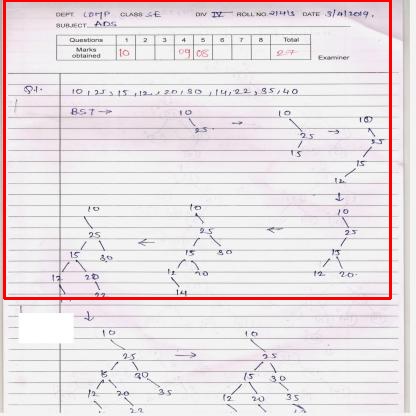 DEPT. COMP CLASS SE DIV IV ROLL NO. 2143 DATE 3/4/2019.
SUBJECT. ADS
Questions 1 2 3 4 5 6 7 8 Total
Marks obtained 10 09 08 27
Examiner
Q1. 10, 25, 15, 12, 20, 30, 14, 22, 35, 40
BST →
10 → 10 → 10
25 25 25
15 15
12
↓
10 10 10
25 ← 25 ← 25
15 30 15 30 15
12 20 12 20 12 20
22 14
↓
10 10
25 → 25
15 30 15 30
12 20 35 12 20 35
22